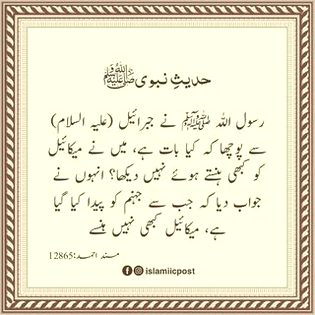 حدیثِ نبوی ﷺ
رسول اللہ ﷺ نے جبرائیل (علیہ السلام)
سے پوچھا کہ کیا بات ہے، میں نے میکائیل
کو کبھی ہنستے ہوئے نہیں دیکھا؟ انہوں نے
جواب دیا کہ جب سے جہنم کو پیدا کیا گیا
ہے، میکائیل کبھی نہیں ہنسے
مسند احمد:12865
islamiicpost